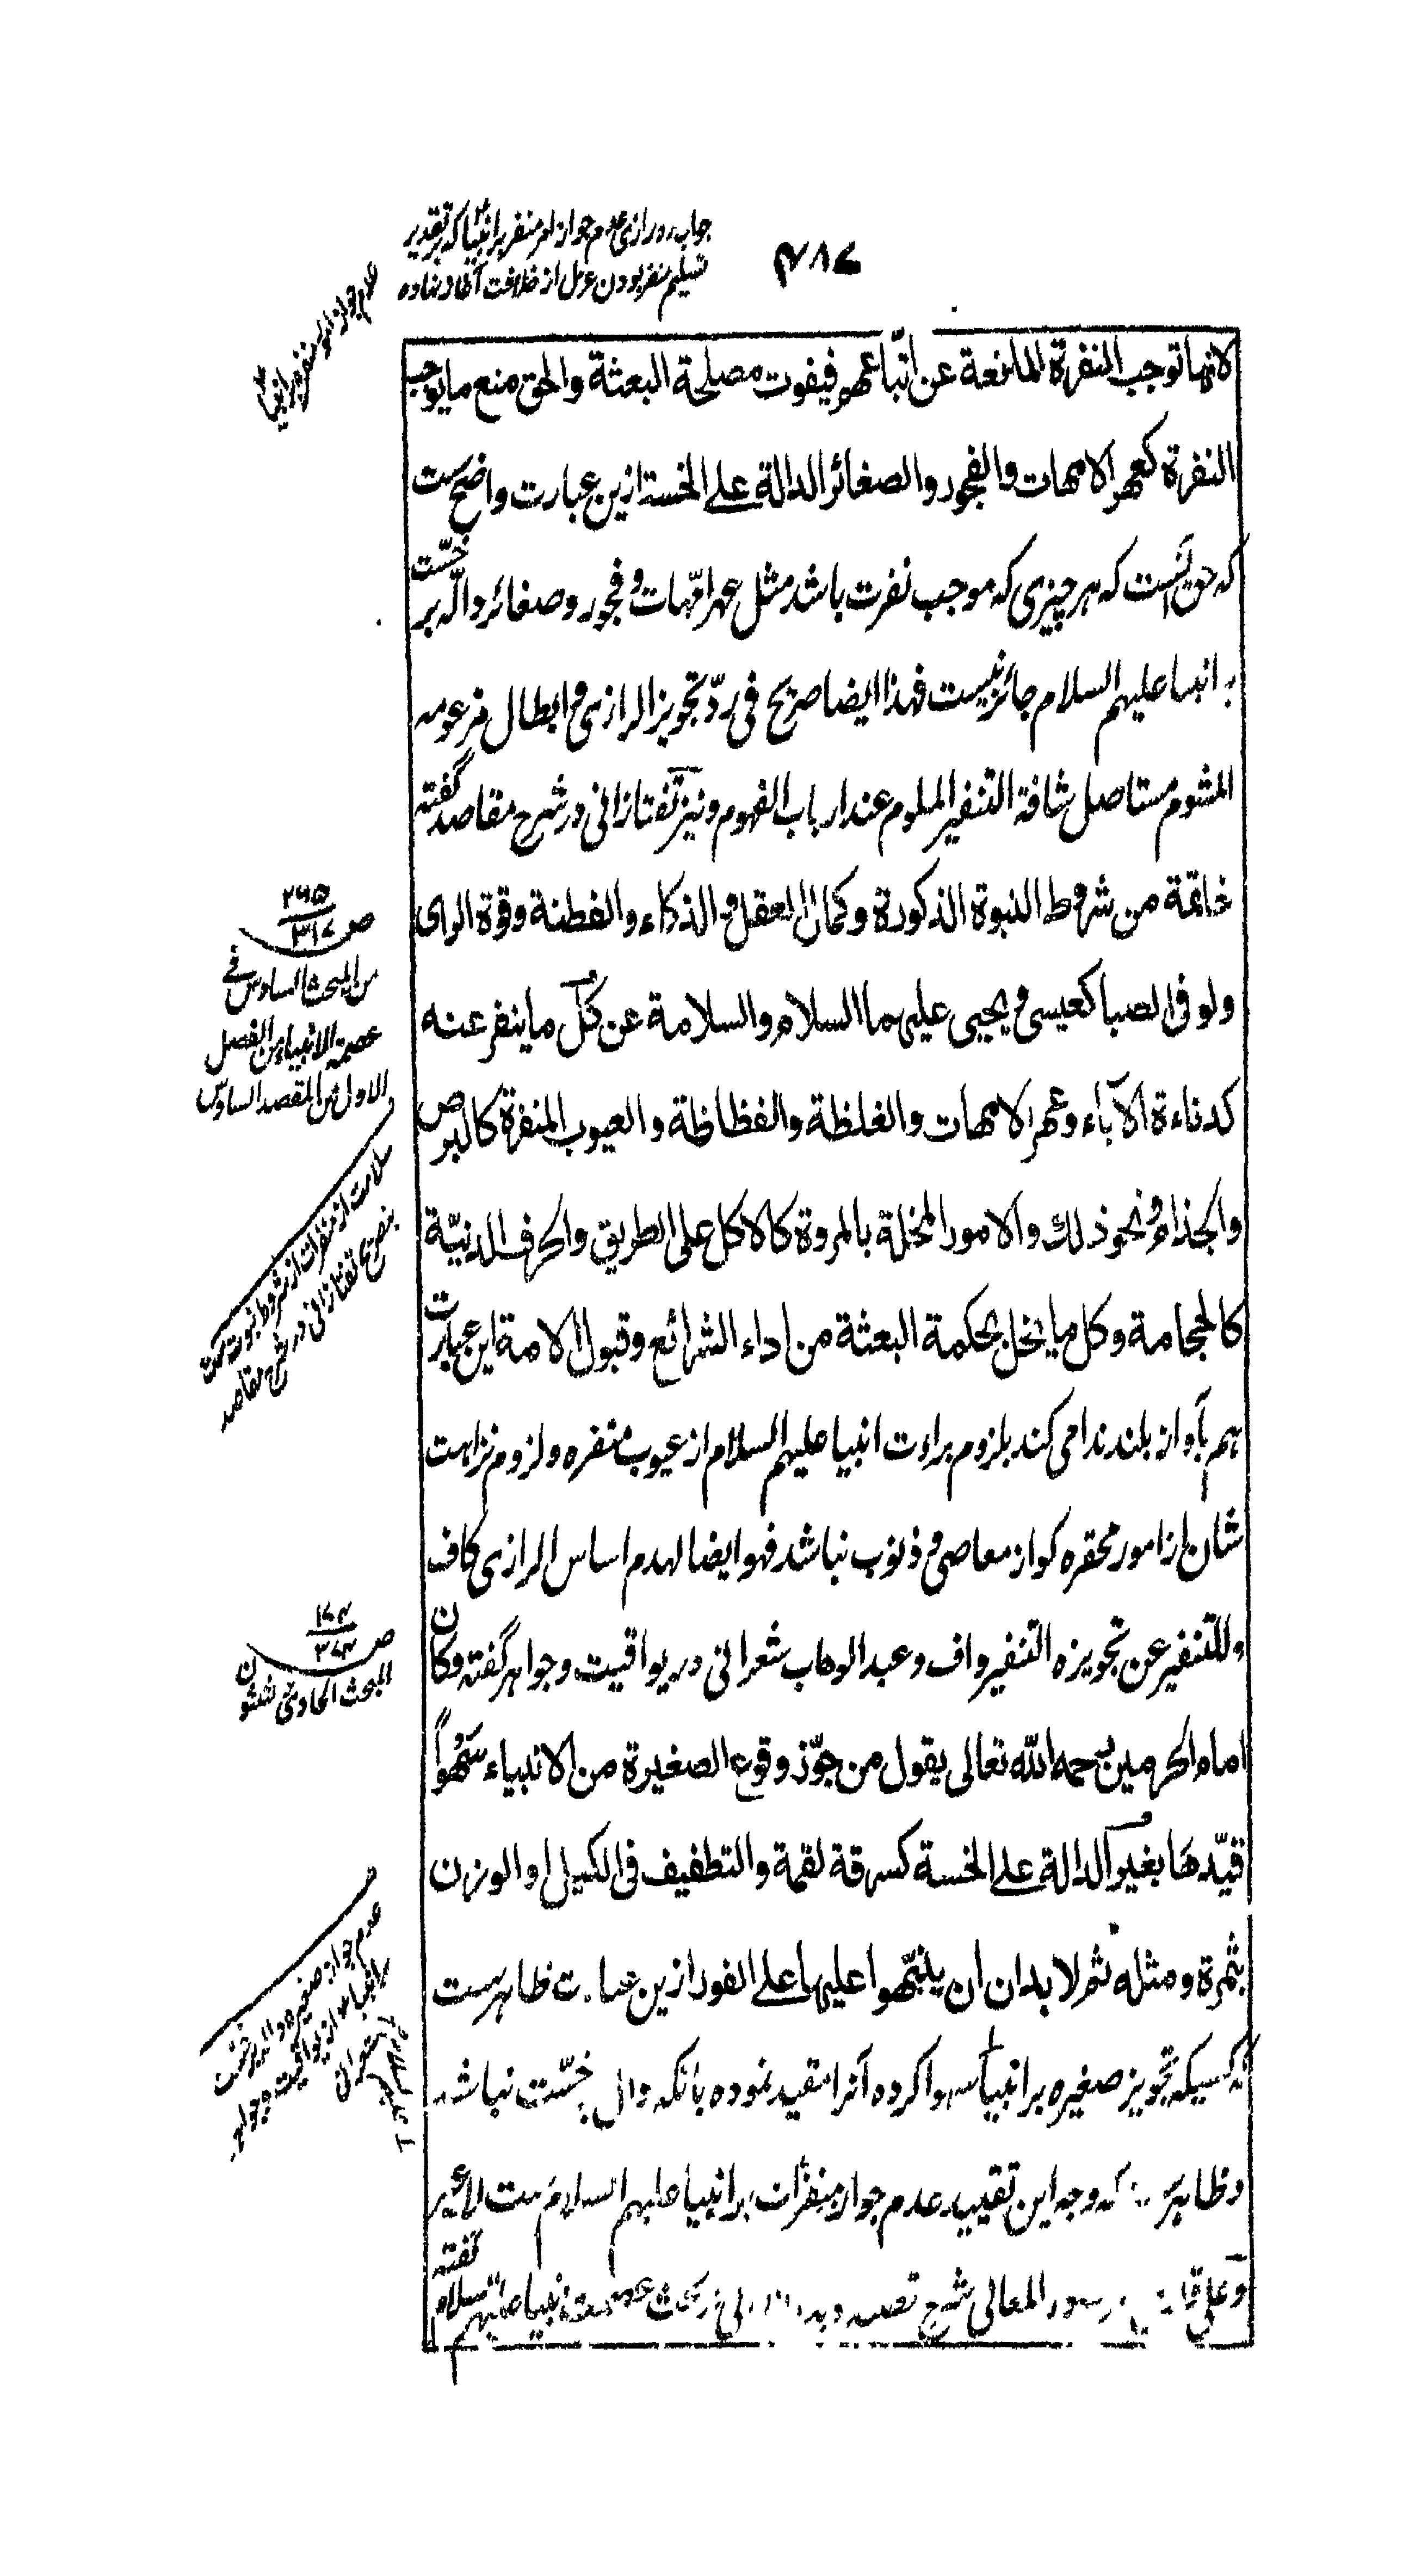 جواب رد رازی عدم جواز امر منفر بر انبیا که بر تقدیر
تسلیم منفر بودن عزل از خلافت آغاز نهاده
۴۸۷
عدم جواز امر منفر بر انبیا
لانها توجب النفرة المانعة عن اتّباعهم فيفوت مصلحة البعثة والحق منع ما يوجب
النفرة كعهر الامهات والفجور والصغائر الدالة على الخسة ازین عبارت واضح ست
که حق اینست که هر چیزی که موجب نفرت باشد مثل عهر امّهات و فجور و صغائر دالّه بر خسّت
بر انبیا علیهم السلام جائز نیست فهذا ایضا صریح فی ردّ تجویز الرازی و ابطال مزعومه
المشوم مستاصل شافة التنفير الملوم عند ارباب الفهوم و نیز تفتازانی در شرح مقاصد گفته
خاتمة من شروط النبوة الذكورة وكمال العقل والذكاء والفطنة وقوة الرای
ولو فی الصبا كعيسی و يحيی عليهما السلام والسلامة عن كل ما ينفر عنه
كدناءة الآباء وعهر الامهات والغلظة والفظاظة والعيوب المنفرة كالبرص
والجذام ونحو ذلك والامور المخلة بالمروة كالاكل على الطريق والحرف الدنيّة
كالحجامة وكل ما يخل بحكمة البعثة من اداء الشرائع وقبول الامة این عبارت
هم بآواز بلند ندا می کند بلزوم براءت انبیا علیهم السلام از عیوب منفره و لزوم نزاهت
شان از امور محقره کو از معاصی و ذنوب نباشد فهو ایضا لهدم اساس الرازی کاف
وللتنفير عن تجويزه التنفير واف و عبد الوهاب شعرانی در یواقیت و جواهر گفته وكان
امام الحرمين رحمه الله تعالى يقول من جوّز وقوع الصغيرة من الانبياء سَهْواً
قيّدها بغير الدالة على الخسة كسرقة لقمة والتطفيف فی الكيل او الوزن
بثمرة ومثله ثم لا بد ان ان ينبّهوا عليها على الفور ازین عبارت ظاهرست
که کسیکه تجویز صغیره بر انبیا سهوا کرده آنرا مقید نموده بانکه دال بر خسّت نباشد
و ظاهر که وجه این تقیید عدم جواز منفرات بر انبیا علیهم السلام ست لا غیر
و علی المعالی شرح در بحث عصمة انبیا علیهم السلام گفته
ص ۲۶۵
۳۱۷
من المبحث السادس فی
عصمة الانبیاء من الفصل
الاول من المقصد السادس
سلامت از منفرات از شروط نبوت ست
بنصریح تفتازانی در شرح مقاصد
ص ۱۷۴
۳۷۴
المبحث الحادی ثلثون
عدم جواز صغیره داله بر خست
بر انبیا از یواقیت و جواهر
شعرانی